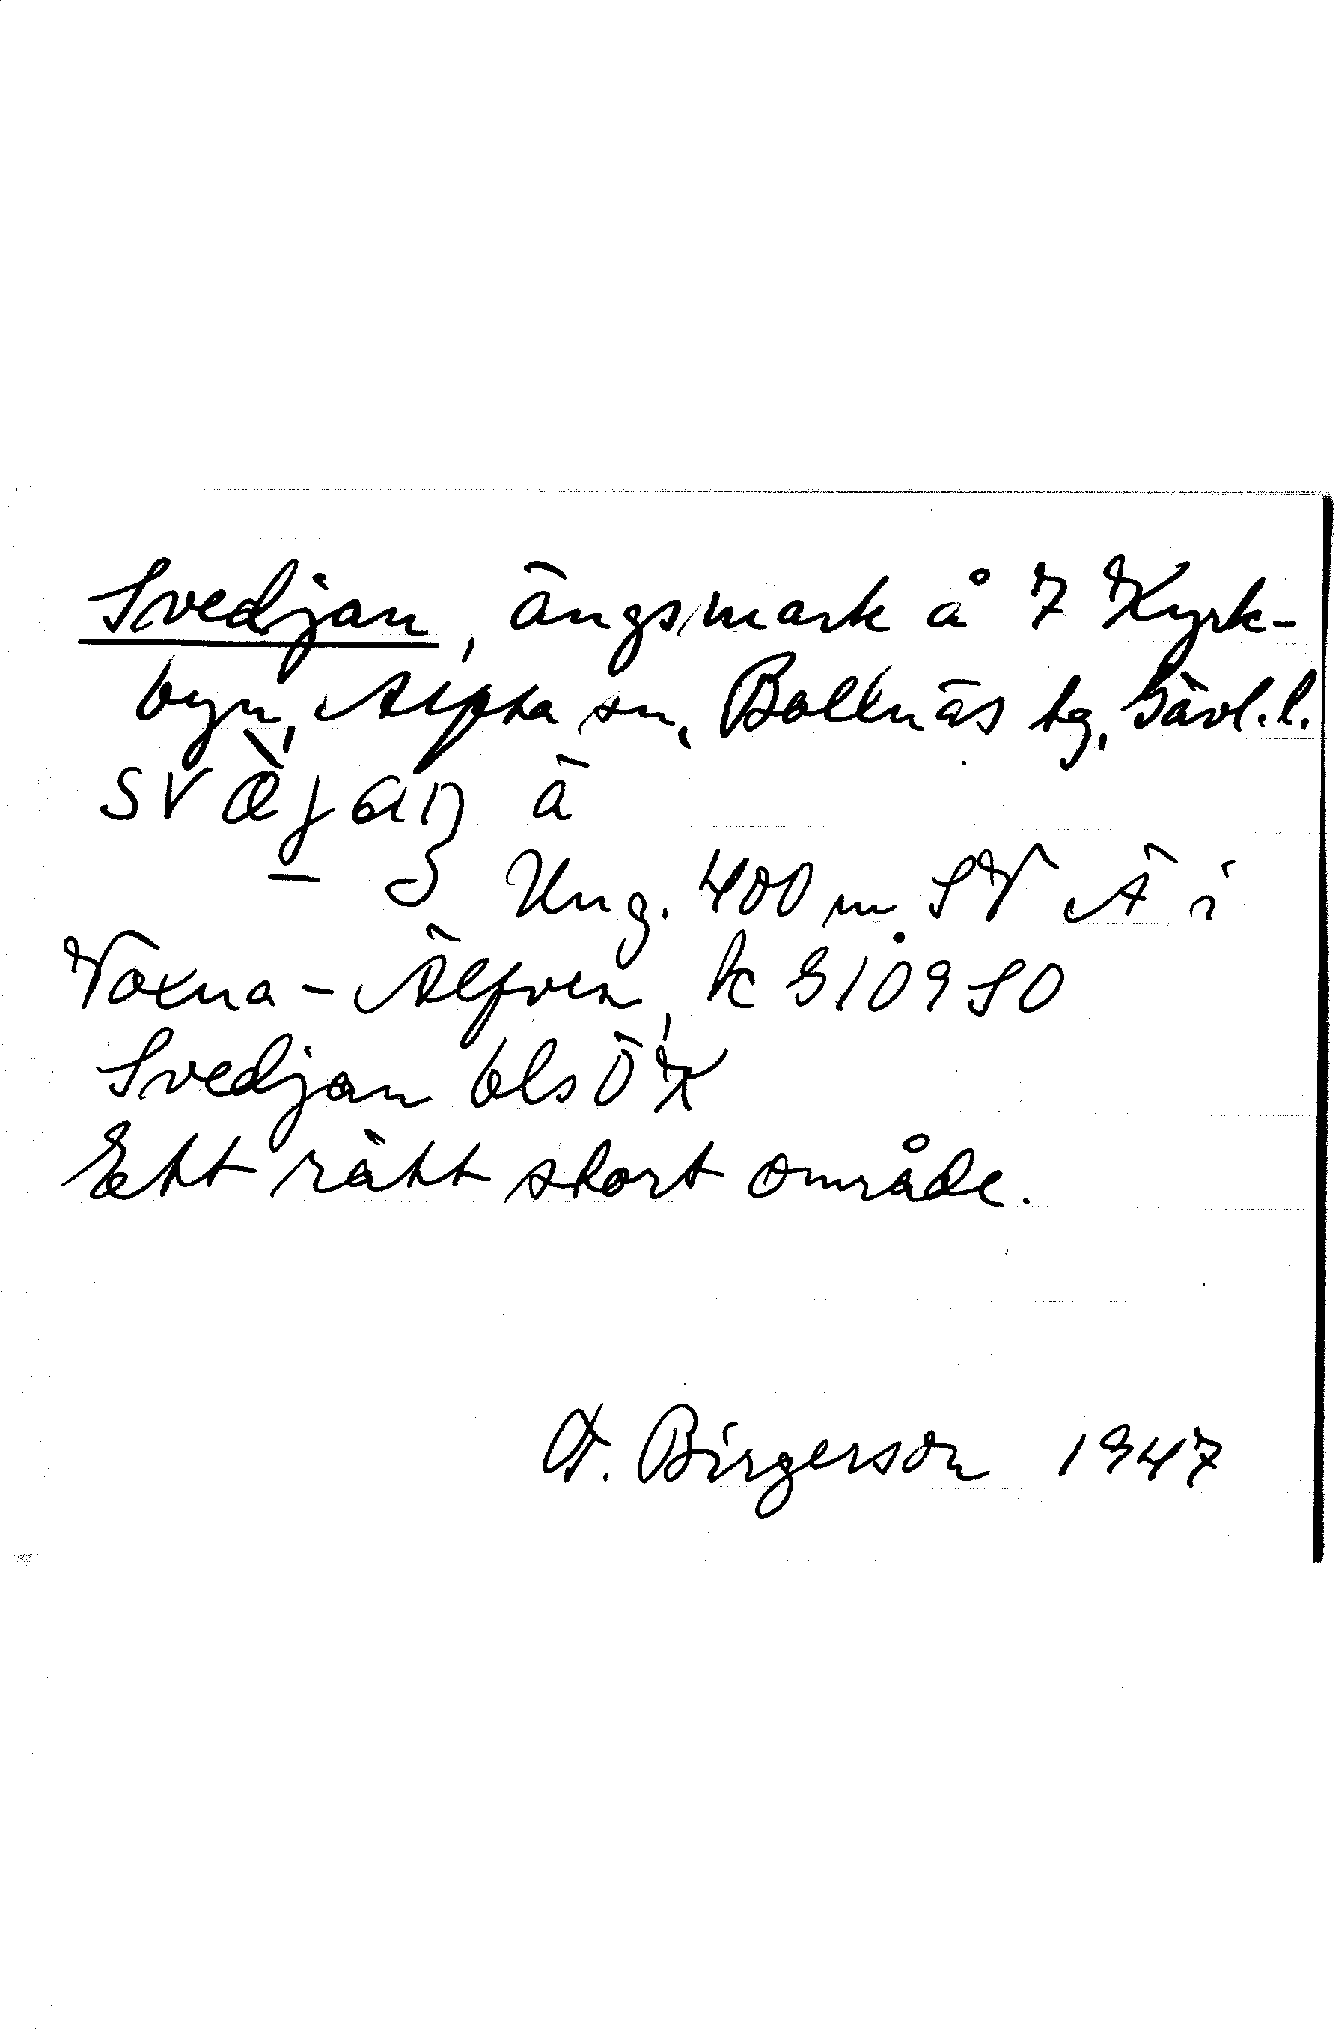 Svedjan, ängsmark å 7 Kyrk-
byn, Alfta sn, Bollnäs tg, Gävl.l.
svæ̀jan ä
Ung. 400 m SV Ä i
Voxna-Älfven, k 910950
Svedjan bls ÖK
Ett rätt stort område.
A. Birgerson 1947